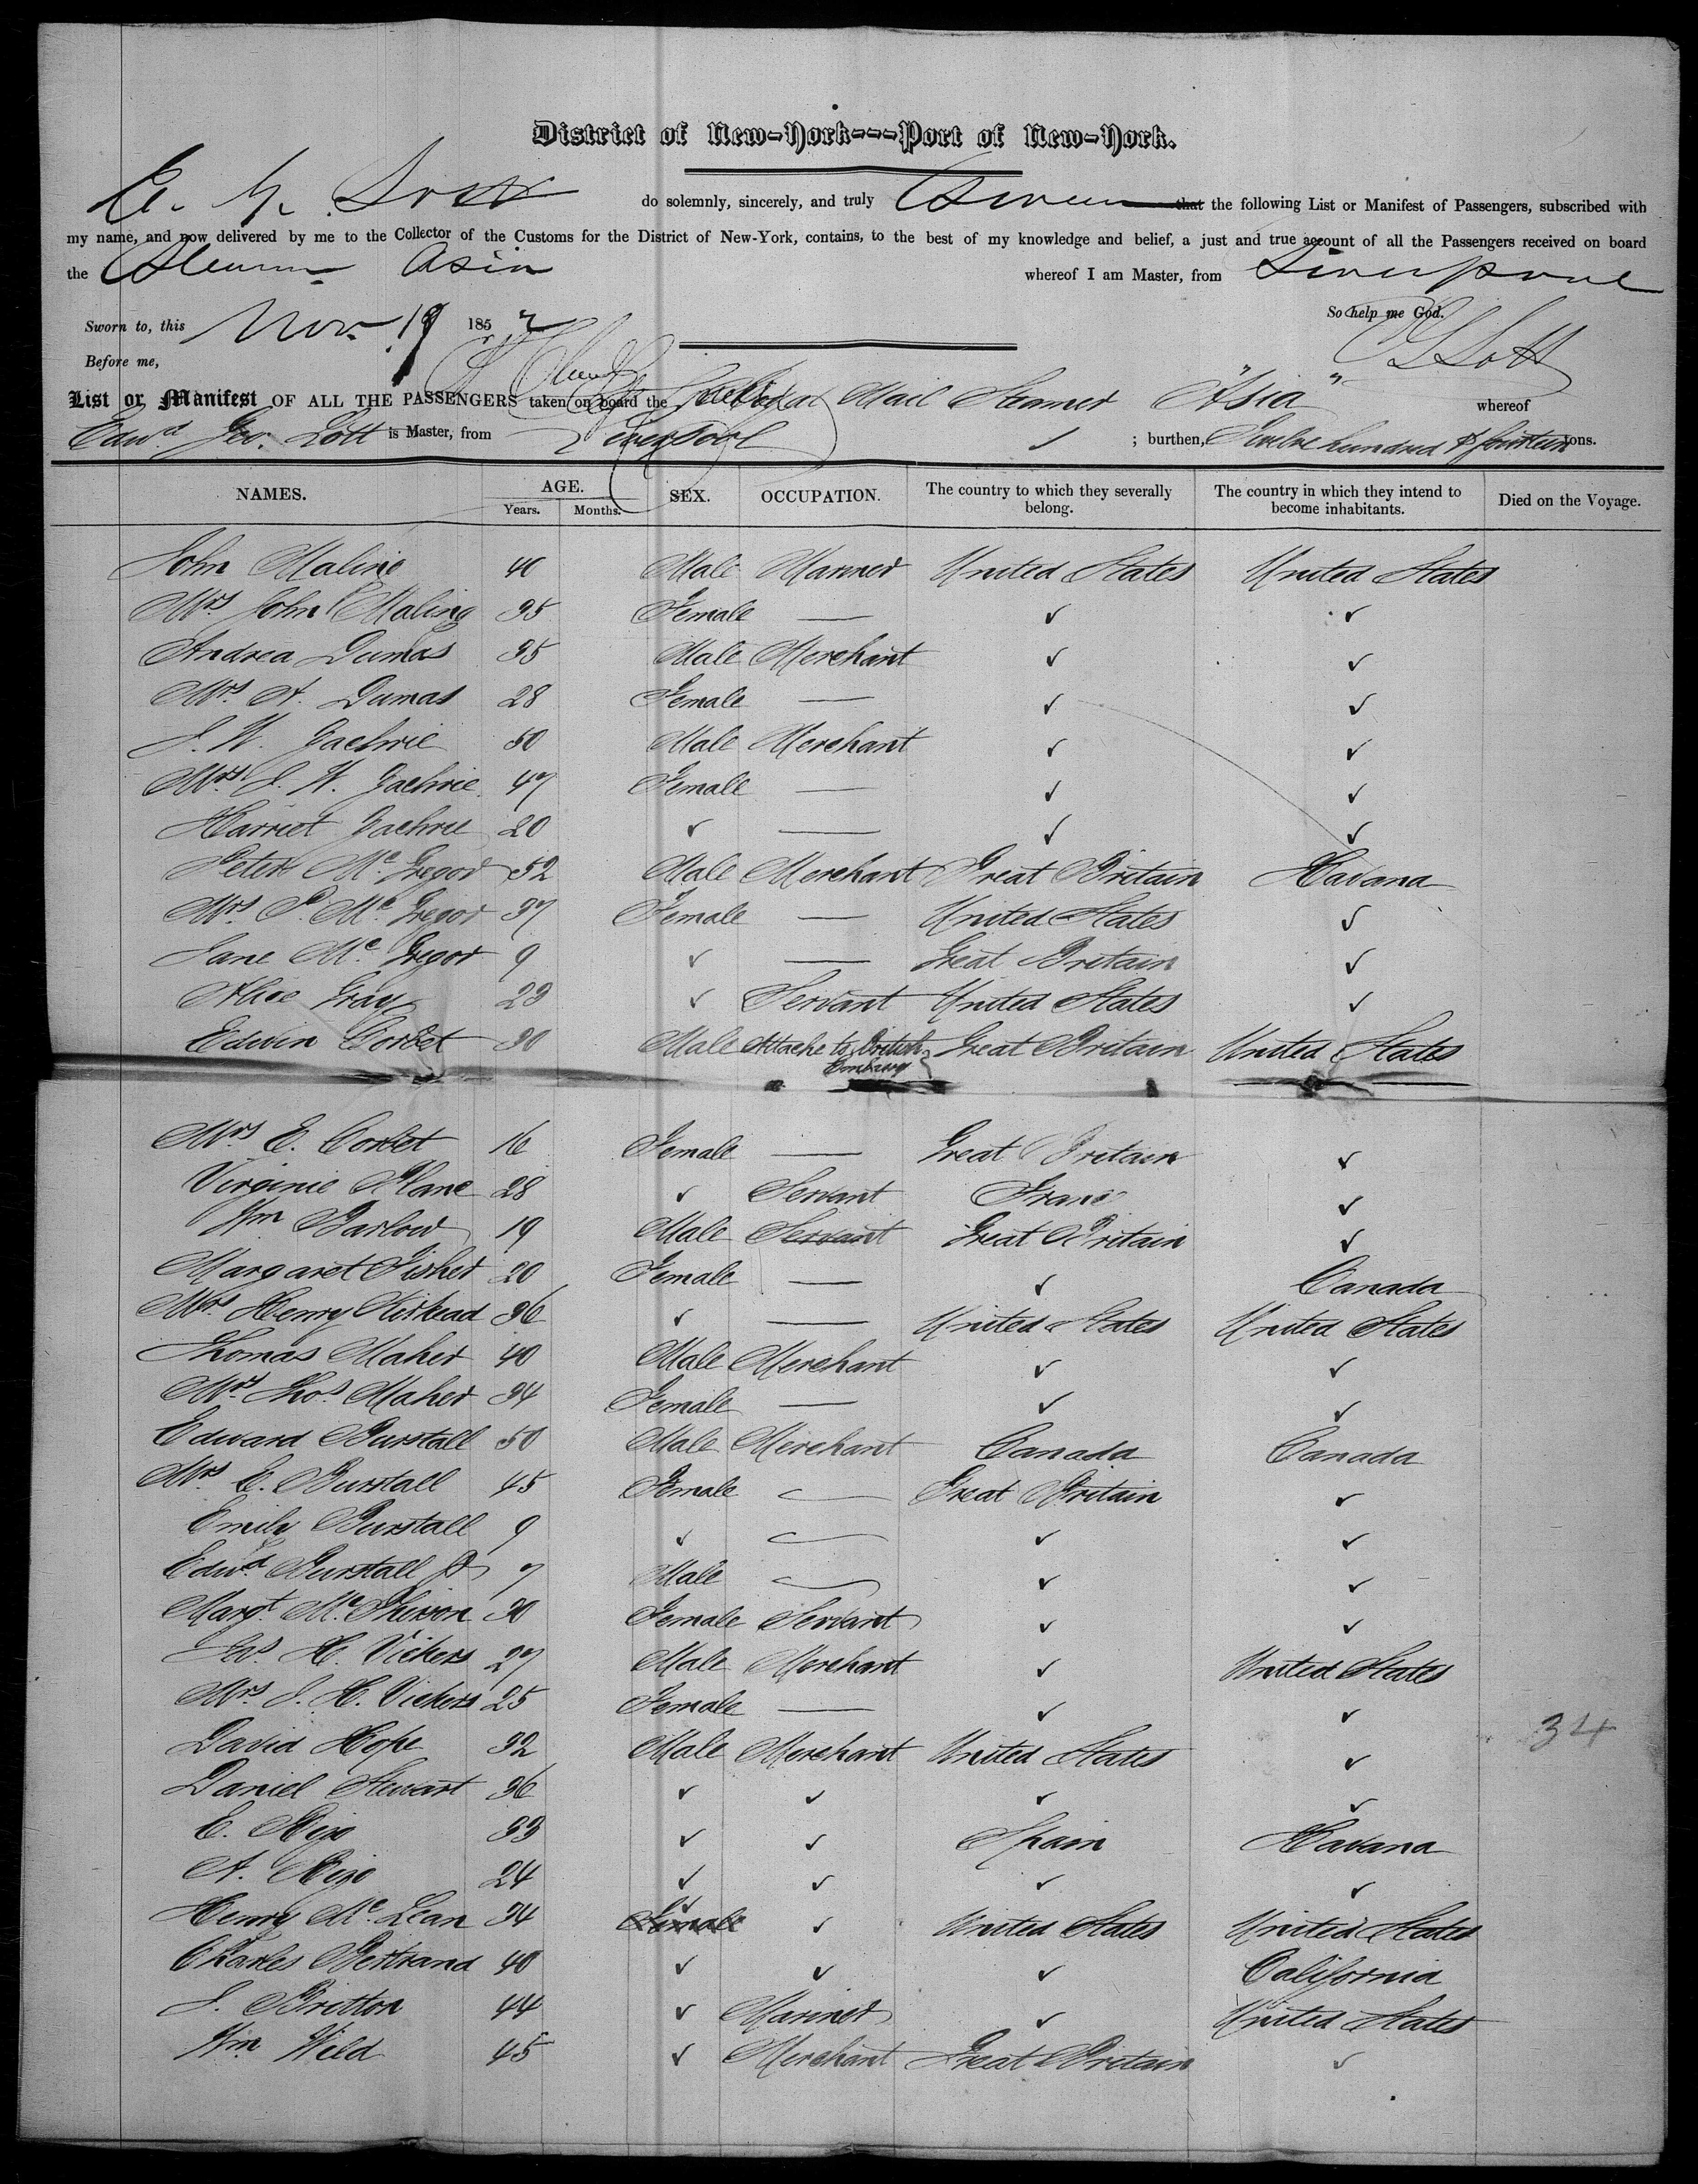 District of New-York---Port of New-York.
E. G. Lott do solemnly, sincerely, and truly Swear that the following List or Manifest of Passengers, subscribed with
my name, and now delivered by me to the Collector of the Customs for the District of New-York, contains, to the best of my knowledge and belief, a just and true account of all the Passengers received on board
the Steamer Asia whereof I am Master, from Liverpool
So help me God.
Sworn to, this Nov. 19 1852 E G Lott
Before me,
List or Manifest OF ALL THE PASSENGERS taken on board the Mail Steamer "Asia" whereof
Edwd Geo. Lott is Master, from Liverpool ; burthen, Twelve hundred & fourteen tons.
NAMES. AGE. SEX. OCCUPATION. The country to which they severally belong. The country in which they intend to become inhabitants. Died on the Voyage.
Years. Months.
John Maling 40 Male Mariner United States United States
Mrs John Maling 35 Female — ✓ ✓
Andrea Dumas 35 Male Merchant ✓ ✓
Mrs A. Dumas 28 Female — ✓ ✓
J. W. 50 Male Merchant ✓ ✓
Mrs J. W. 47 Female — ✓ ✓
Harriet 20 ✓ — ✓ ✓
Peter Mc Gregor 52 Male Merchant Great Britain Havana
Mrs P. Mc Gregor 37 Female — United States ✓
Jane Mc Gregor 9 ✓ — Great Britain ✓
Alice Gray 23 ✓ Servant United States ✓
Edwin Corbet 30 Male Attache to British Embassy Great Britain United States
Mrs E. Corbet 16 Female — Great Britain ✓
Virginie Plane 28 ✓ Servant France ✓
Wm Barlow 19 Male Servant Great Britain ✓
Margaret Fisher 20 Female — ✓ Canada
Mrs Henry Kirkead 36 ✓ — United States United States
Thomas Maher 40 Male Merchant ✓ ✓
Mrs Thos Maher 34 Female — ✓ ✓
Edward Burstall 50 Male Merchant Canada Canada
Mrs E. Burstall 45 Female — Great Britain ✓
Emily Burstall 9 ✓ — ✓ ✓
Edwd Burstall Jr 7 Male — ✓ ✓
Margt Mc 30 Female Servant ✓ ✓
Jas. H. Vickers 27 Male Merchant ✓ United States
Mrs J. H. Vickers 25 Female — ✓ ✓
David Hope 32 Male Merchant United States ✓
34
Daniel Stewart 36 ✓ ✓ ✓ ✓
E. Rizo 33 ✓ ✓ Spain Havana
A. Rizo 24 ✓ ✓ ✓ ✓
Henry Mc Lean 34 ✓ Female ✓ United States United States
Charles Bertrand 40 ✓ ✓ ✓ California
J. Britton 44 ✓ Mariner ✓ United States
Wm Wild 45 ✓ Merchant Great Britain ✓